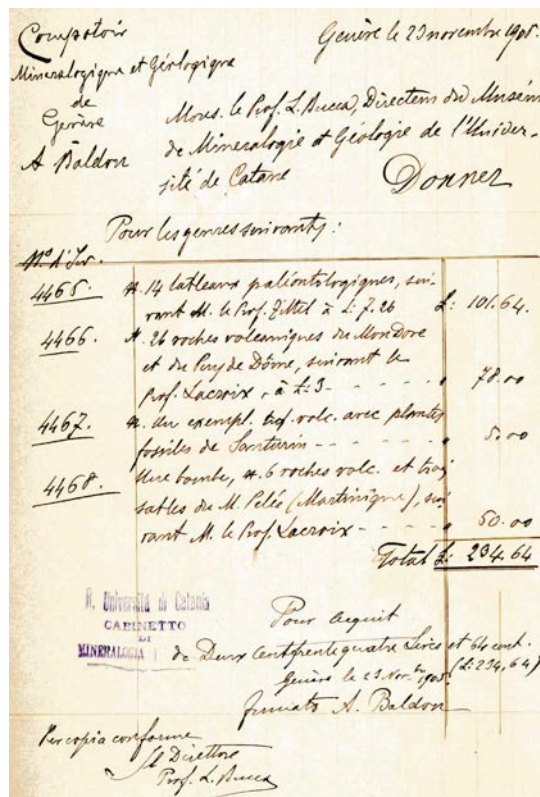 Comptoir
Minéralogique et Géologique
de
Genève
A Baldon
Genève le 23 novembre 1905.
Mons. le Prof. L. Bucca, Directeur du Muséum
de Mineralogie et Géologie de l'Univer-
sité de Catane
Donner
Pour les genres suivants:
N.º d'Inv.
4465. N. 14 tableaux paléontologiques, sui-
vant M. le Prof. Zittel à L: 7.26 L: 101.64.
4466. N. 26 roches volcaniques du Mon Dore
et du Puy de Dôme, suivant le
Prof. Lacroix, à L: 3 - - - - - " 78.00
4467. N. un exempl. tuf. volc. avec plantes
fossiles de Santurin - - - - - - " 5.00
4468. Une bombe, N. 6 roches volc. et troi
sables du M. Pelée (Martinique), sui-
vant M. le Prof. Lacroix - - - - " 50.00
Total L: 234.64
R. Università di Catania
GABINETTO
DI
MINERALOGIA
Pour acquit
de Deux cent trente quatre Lires et 64 cent.
(L: 234,64)
Genève le 23 Nov.bre 1905.
firmato A. Baldon
Per copia conforme
Il Direttore
Prof. L. Bucca